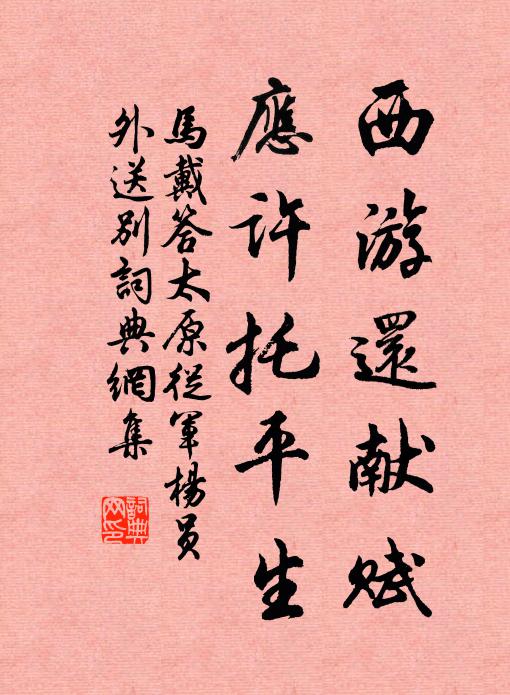 西游還献赋
應许托平生
馬戴答太原從軍楊员
外送别詞典網集
詞典网印